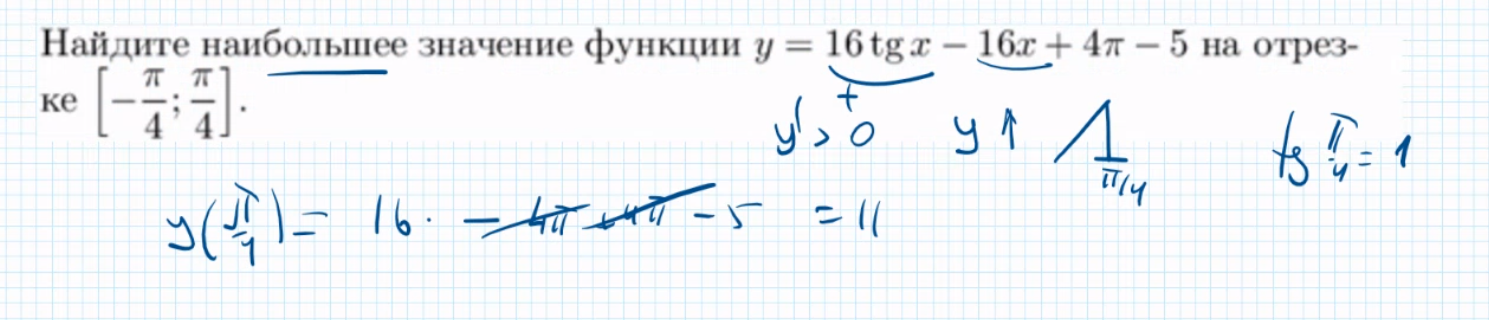 Найдите наибольшее значение функции y = 16 tg x − 16x + 4π − 5 на отрез-
ке [−π/4; π/4].
+
y' > 0 y ↑ π/4 tg π/4 = 1
y(π/4) = 16· − 4π + 4π − 5 = 11